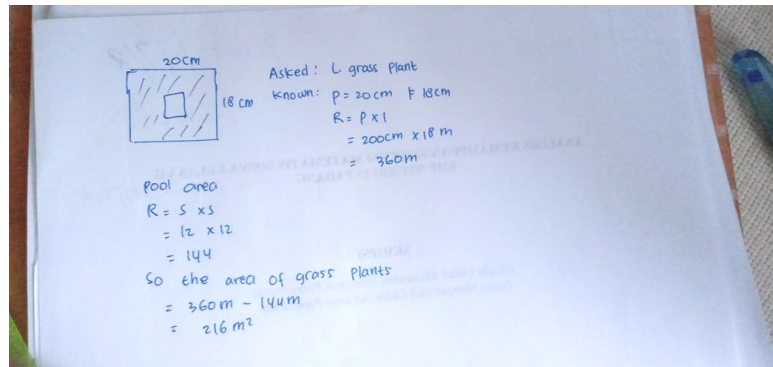 20cm
18 cm
Asked: L grass plant
Known: P = 20cm F 18cm
R = P x l
= 200cm x 18 m
= 360m
Pool area
R = S x S
= 12 x 12
= 144
So the area of grass plants
= 360m - 144m
= 216 m²